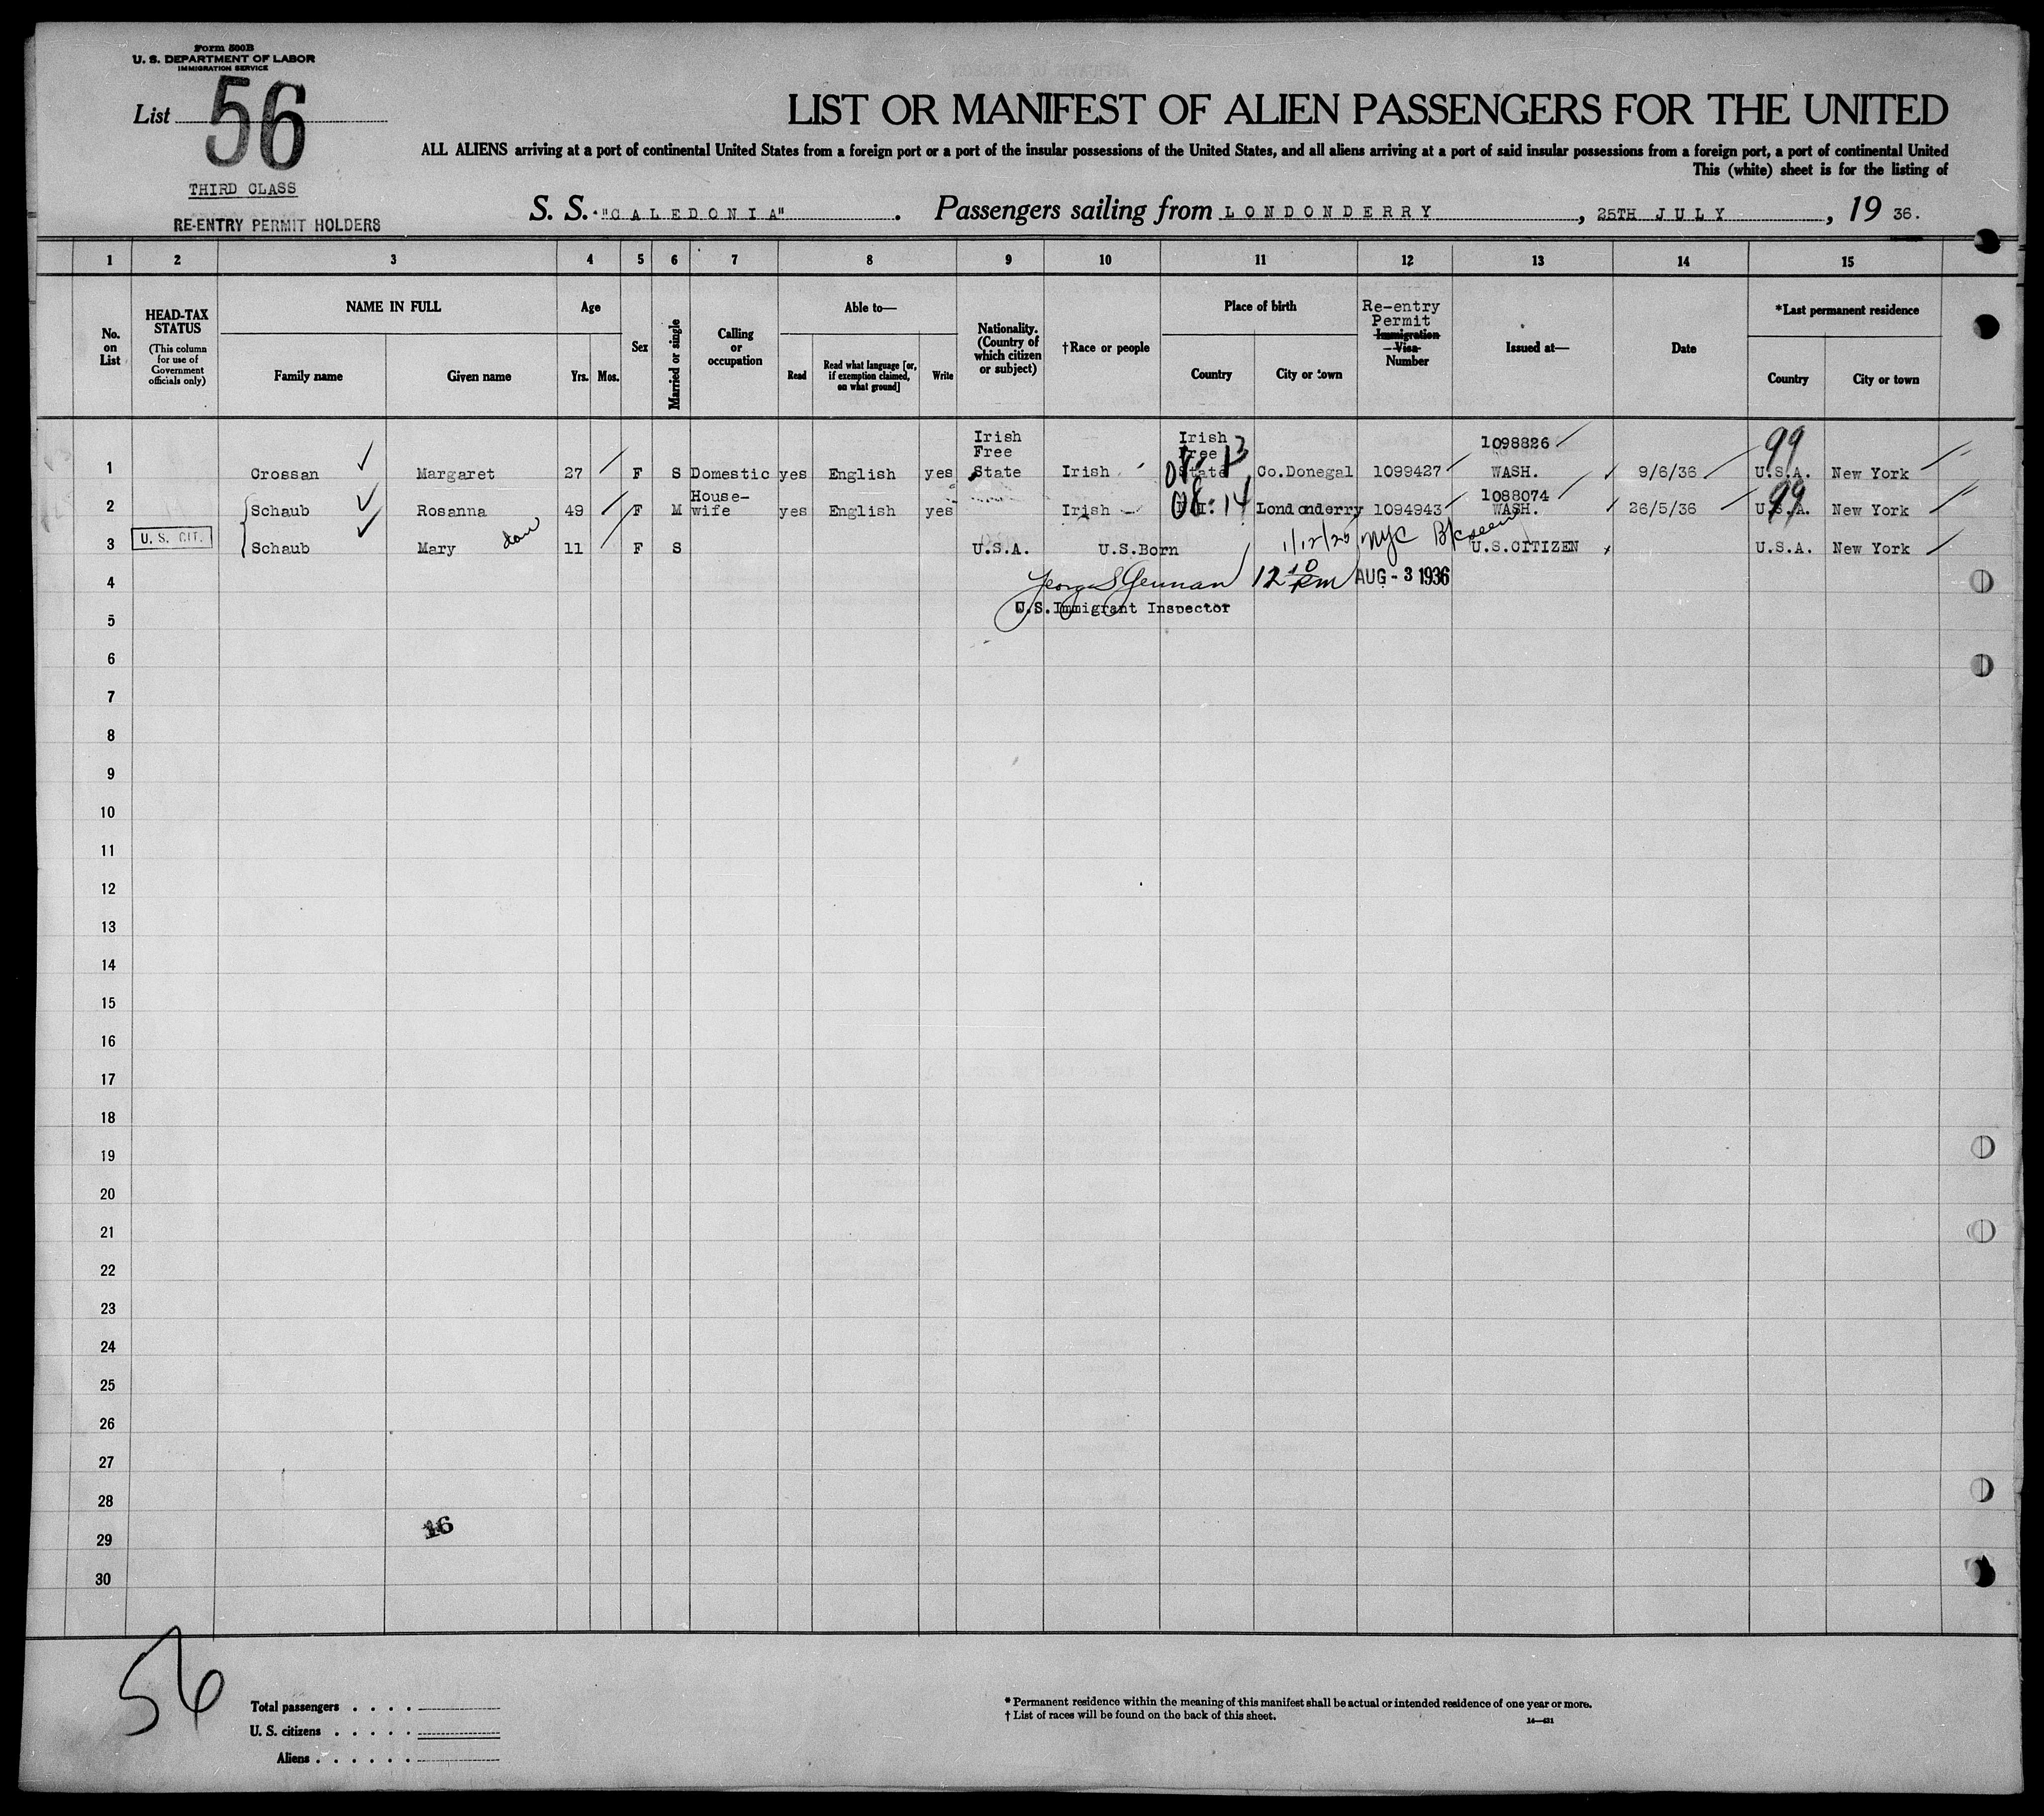 Form 500B
U. S. DEPARTMENT OF LABOR
IMMIGRATION SERVICE
List 56
THIRD CLASS
RE-ENTRY PERMIT HOLDERS
LIST OR MANIFEST OF ALIEN PASSENGERS FOR THE UNITED
ALL ALIENS arriving at a port of continental United States from a foreign port or a port of the insular possessions of the United States, and all aliens arriving at a port of said insular possessions from a foreign port, a port of continental United
This (white) sheet is for the listing of
S. S. "CALEDONIA" . Passengers sailing from LONDONDERRY , 25TH JULY , 19 36.
1 2 3 4 5 6 7 8 9 10 11 12 13 14 15
No. on List
HEAD-TAX STATUS
(This column for use of Government officials only)
NAME IN FULL
Family name Given name
Age
Yrs. Mos.
Sex
Married or single
Calling or occupation
Able to—
Read
Read what language [or, if exemption claimed, on what ground]
Write
Nationality. (Country of which citizen or subject)
†Race or people
Place of birth
Country City or town
Re-entry Permit
Immigration Visa
Number
Issued at—
Date
*Last permanent residence
Country City or town
Irish Free Irish Free 1098826 99
1 Crossan Margaret 27 F S Domestic yes English yes State Irish State Co.Donegal 1099427 WASH. 9/6/36 U.S.A. New York
House- 08:14 1088074 99
2 Schaub Rosanna 49 F M wife yes English yes Irish Londonderry 1094943 WASH. 26/5/36 U.S.A. New York
3 U. S. CIT. Schaub Mary dau 11 F S U.S.A. U.S.Born 1/12/25 NYC B/C seen U.S.CITIZEN U.S.A. New York
4 12 10 PM AUG - 3 1936
U.S.Immigrant Inspector
5
6
7
8
9
10
11
12
13
14
15
16
17
18
19
20
21
22
23
24
25
26
27
28
29 16
30
56
Total passengers . . . .
U. S. citizens . . . . .
Aliens . . . . . .
* Permanent residence within the meaning of this manifest shall be actual or intended residence of one year or more.
† List of races will be found on the back of this sheet.
14—421